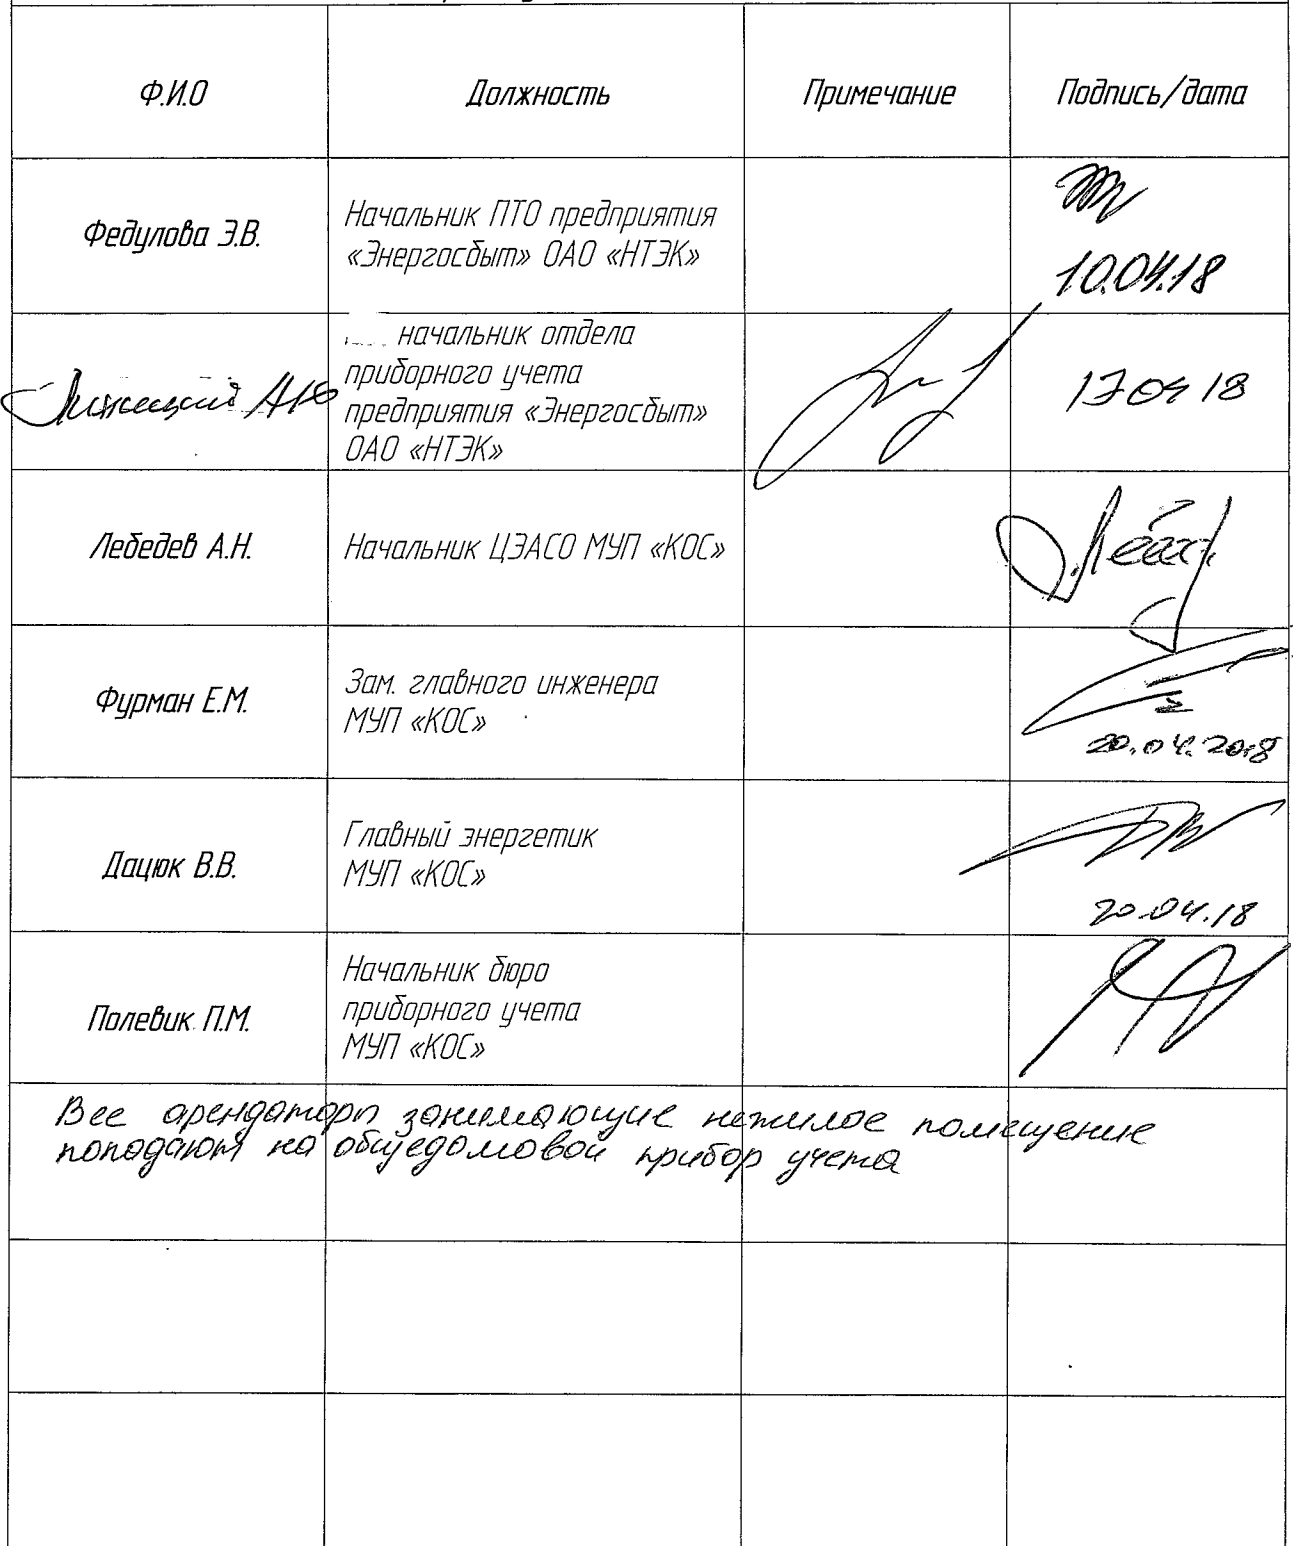 Ф.И.О
Должность
Примечание
Подпись/дата
Федулова Э.В.
Начальник ПТО предприятия
«Энергосбыт» ОАО «НТЭК»
10.04.18
начальник отдела
приборного учета
предприятия «Энергосбыт»
ОАО «НТЭК»
17 04 18
Лебедев А.Н.
Начальник ЦЭАСО МУП «КОС»
Фурман Е.М.
Зам. главного инженера
МУП «КОС»
20.04.2018
Дацюк В.В.
Главный энергетик
МУП «КОС»
20.04.18
Полевик П.М.
Начальник бюро
приборного учета
МУП «КОС»
Все арендаторы занимающие нежилое помещение
попадают на общедомовой прибор учета